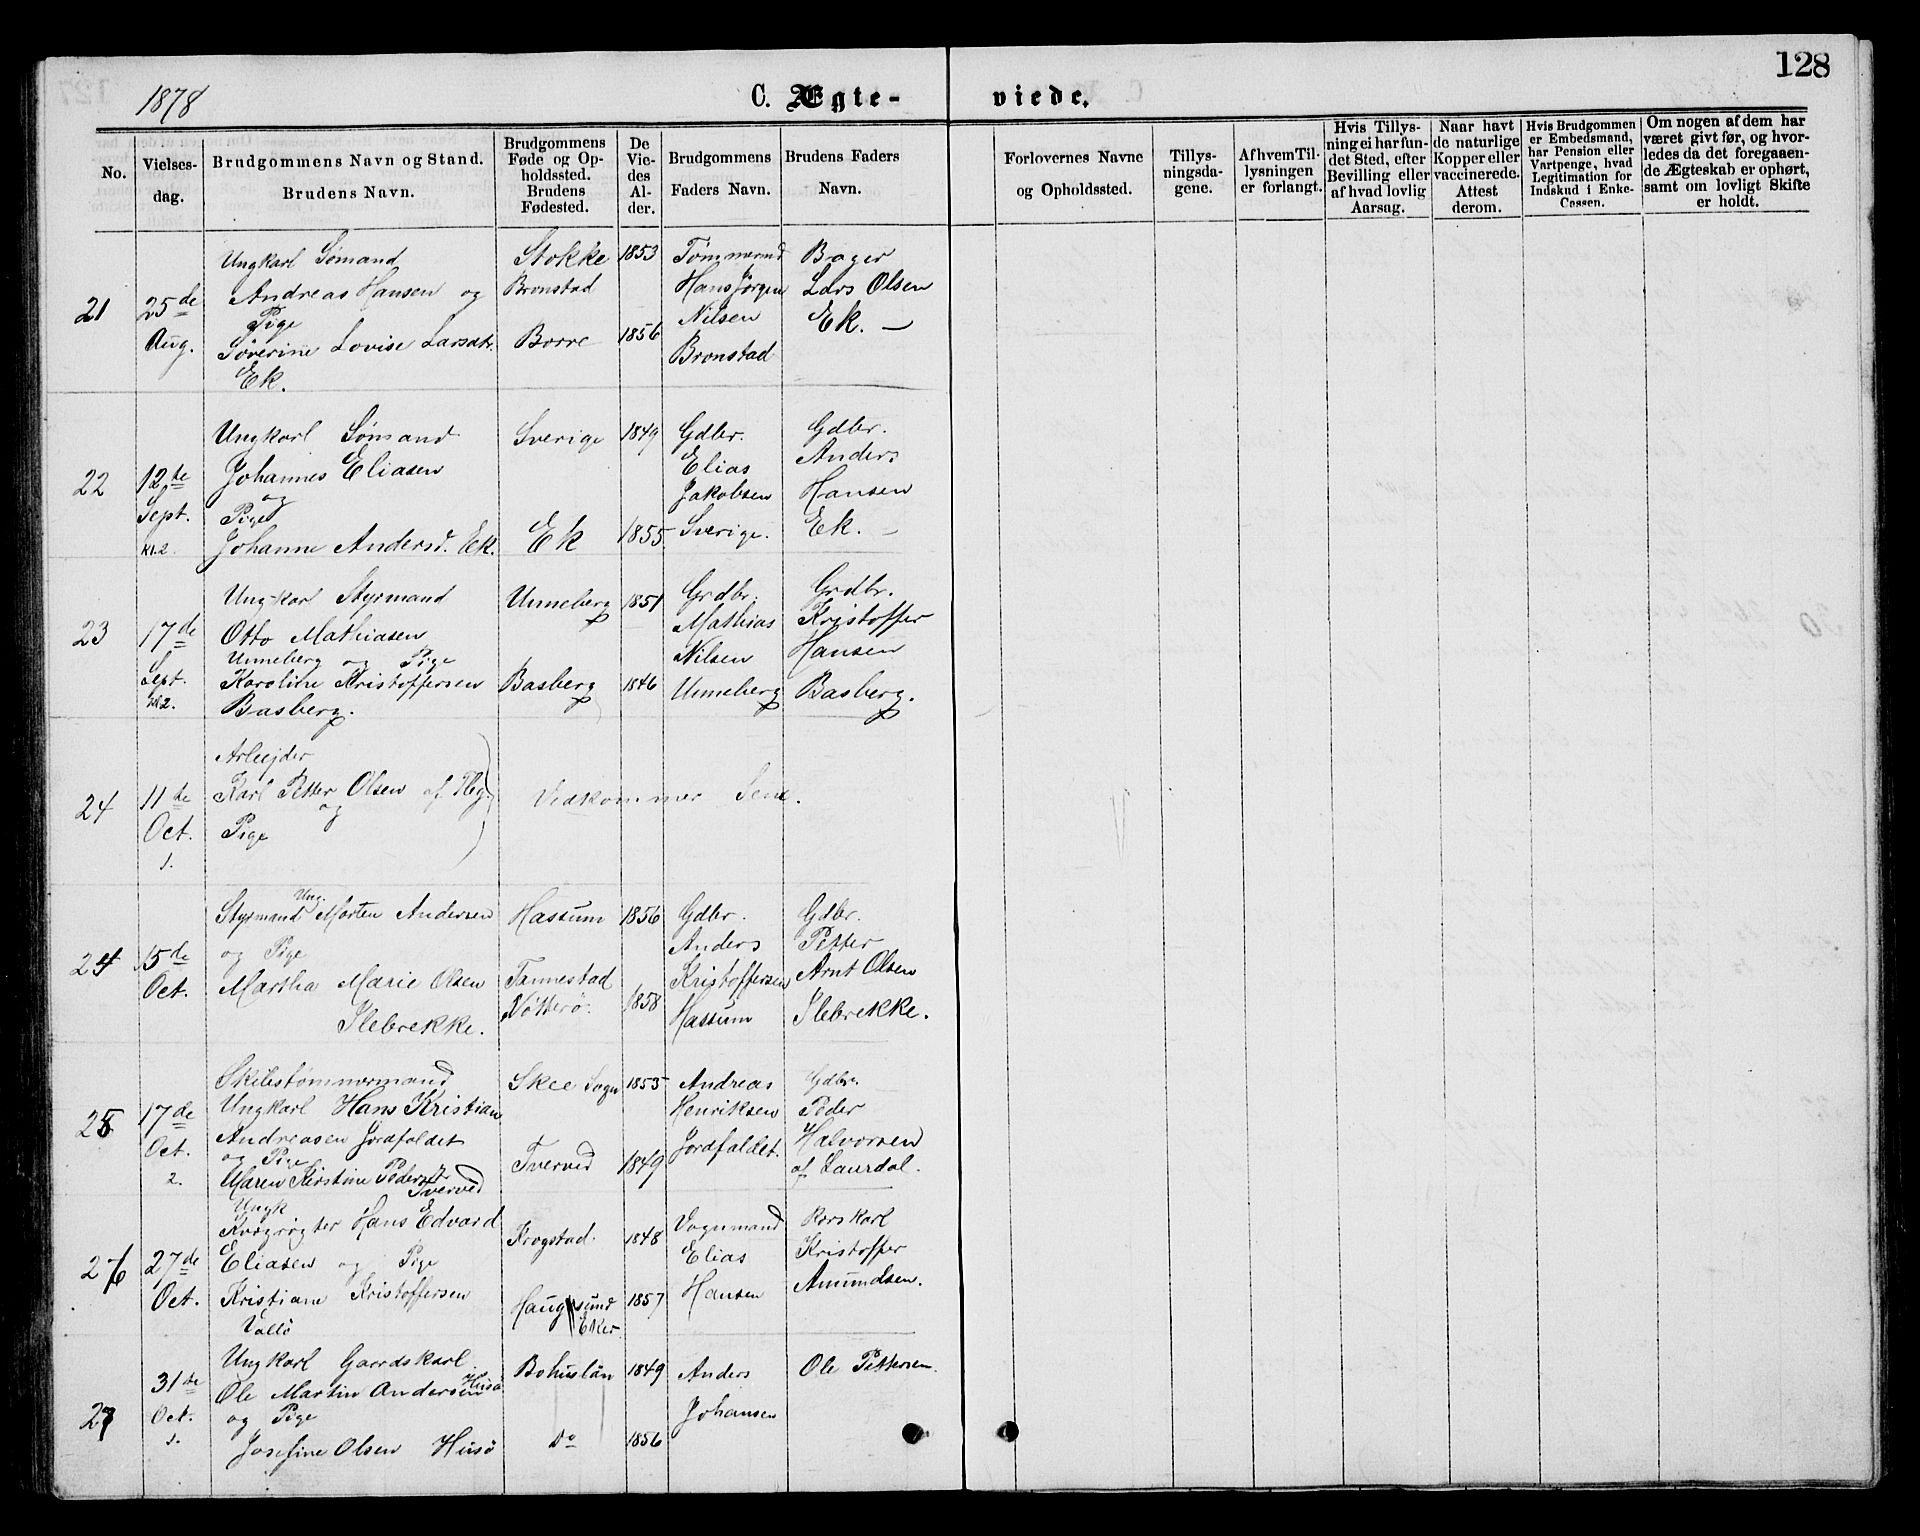 128
1878
C. Ægte- viede.
No.
Vielses-
dag.
Brudgommens Navn og Stand.
Brudens Navn.
Brudgommens
Føde og Op-
holdssted.
Brudens
Fødested.
De
Vie-
des
Al-
der.
Brudgommens
Faders Navn.
Brudens Faders
Navn.
Forlovernes Navne
og Opholdssted.
Tillys-
ningsda-
gene.
Af hvem Til-
lysningen
er forlangt.
Hvis Tillys-
ning ei har fun-
det Sted, efter
Bevilling eller
af hvad lovlig
Aarsag.
Naar havt
de naturlige
Kopper eller
vaccinerede.
Attest
derom.
Hvis Brudgommen
er Embedsmand,
har Pension eller
Vartpenge, hvad
Legitimation for
Indskud i Enke-
Cassen.
Om nogen af dem har
været givt før, og hvor-
ledes da det foregaaen-
de Ægteskab er ophørt,
samt om lovligt Skifte
er holdt.
21
25de
Aug.
Ungkarl Sømand
Andreas Hansen og
Pige
Søverine Lovise Larsdtr.
Ek.
Stokke
Bronstad
Borre
1853
1856
Tømmermd
Hans Jørgen
Nilsen
Bronstad
Bager
Lars Olsen
Ek. —
22
12te
Sept.
kl. 2.
Ungkarl Sømand
Johannes Eliasen
og
Pige
Johanne Andersd. Ek.
Sverige
Ek
1849
1855
Gdbr.
Elias
Jakobsen
Sverige.
Gdbr.
Anders
Hansen
Ek. —
23
17de
Sept.
kl 2.
Ungkarl Styrmand
Otto Mathiasen
Unneberg og Pige
Karoline Kristoffersen
Basberg.
Unneberg
Basberg
1851
1846
Grdbr.
Mathias
Nilsen
Unneberg
Grdbr.
Kristoffer
Hansen
Basberg.
24
11te
Oct.
1.
Arbejder
Karl Petter Olsen af
og
Pige
Vedkommer Sem.
24
15de
Oct.
Ung.
Styrmand Morten Andersen
og Pige
Martha Marie Olsen
Ilebrekke.
Hassum
Tannestad
Nøtterø.
1856
1858
Gdbr.
Anders
Kristoffersen
Hassum
Gdbr.
Petter
Arnt Olsen
Ilebrekke.
25
17de
Oct.
2.
Skibstømmermand
Ungkarl Hans Kristian
Andreasen Jordfaldet
og Pige
Maren Kirstine Pedersdtr
Tverved
Skee Sogn
Tverved
1853
1849
Andreas
Henriksen
Jordfaldet.
Gdbr.
Peder
Halvorsen
af Laurdal.
26
27de
Oct.
Ungk
Kvægrøgter Hans Edvard
Eliasen og Pige
Kristiane Kristoffersen
Vallö
Krogstad.
Haugsund
Eker
1848
1857
Vognmand
Elias
Hansen
Kristoffer
Amundsen.
27
31te
Oct.
1.
Ungkarl Gaardskarl
Ole Martin Andersen Husö
og Pige
Josefine Olsen Husö
Bohuslän
Do
1849
1856
Anders
Johansen
Ole Pettersen.